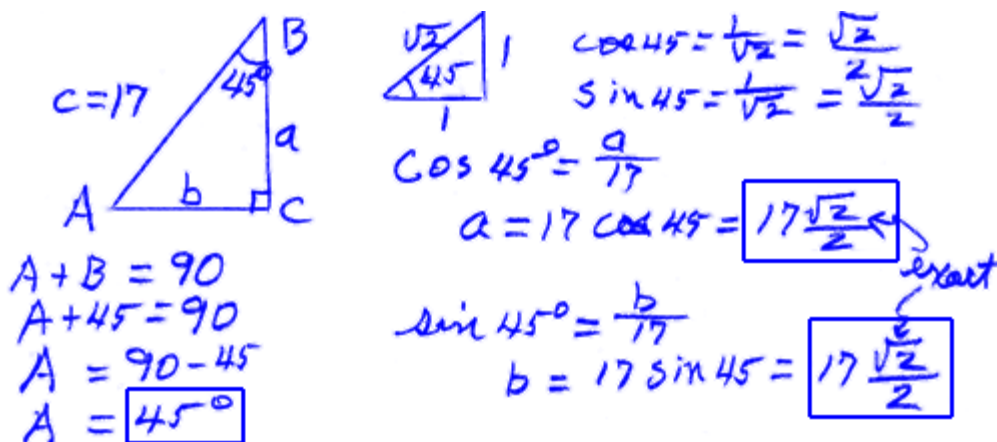 B
45°
c=17
a
b
A
C
A+B = 90
A+45=90
A = 90-45
A = 45°
√2
1
45
1
cos 45 = 1/√2 = √2/2
sin 45 = 1/√2 = √2/2
cos 45° = a/17
a = 17 cos 45 = 17 √2/2
exact
sin 45° = b/17
b = 17 sin 45 = 17 √2/2